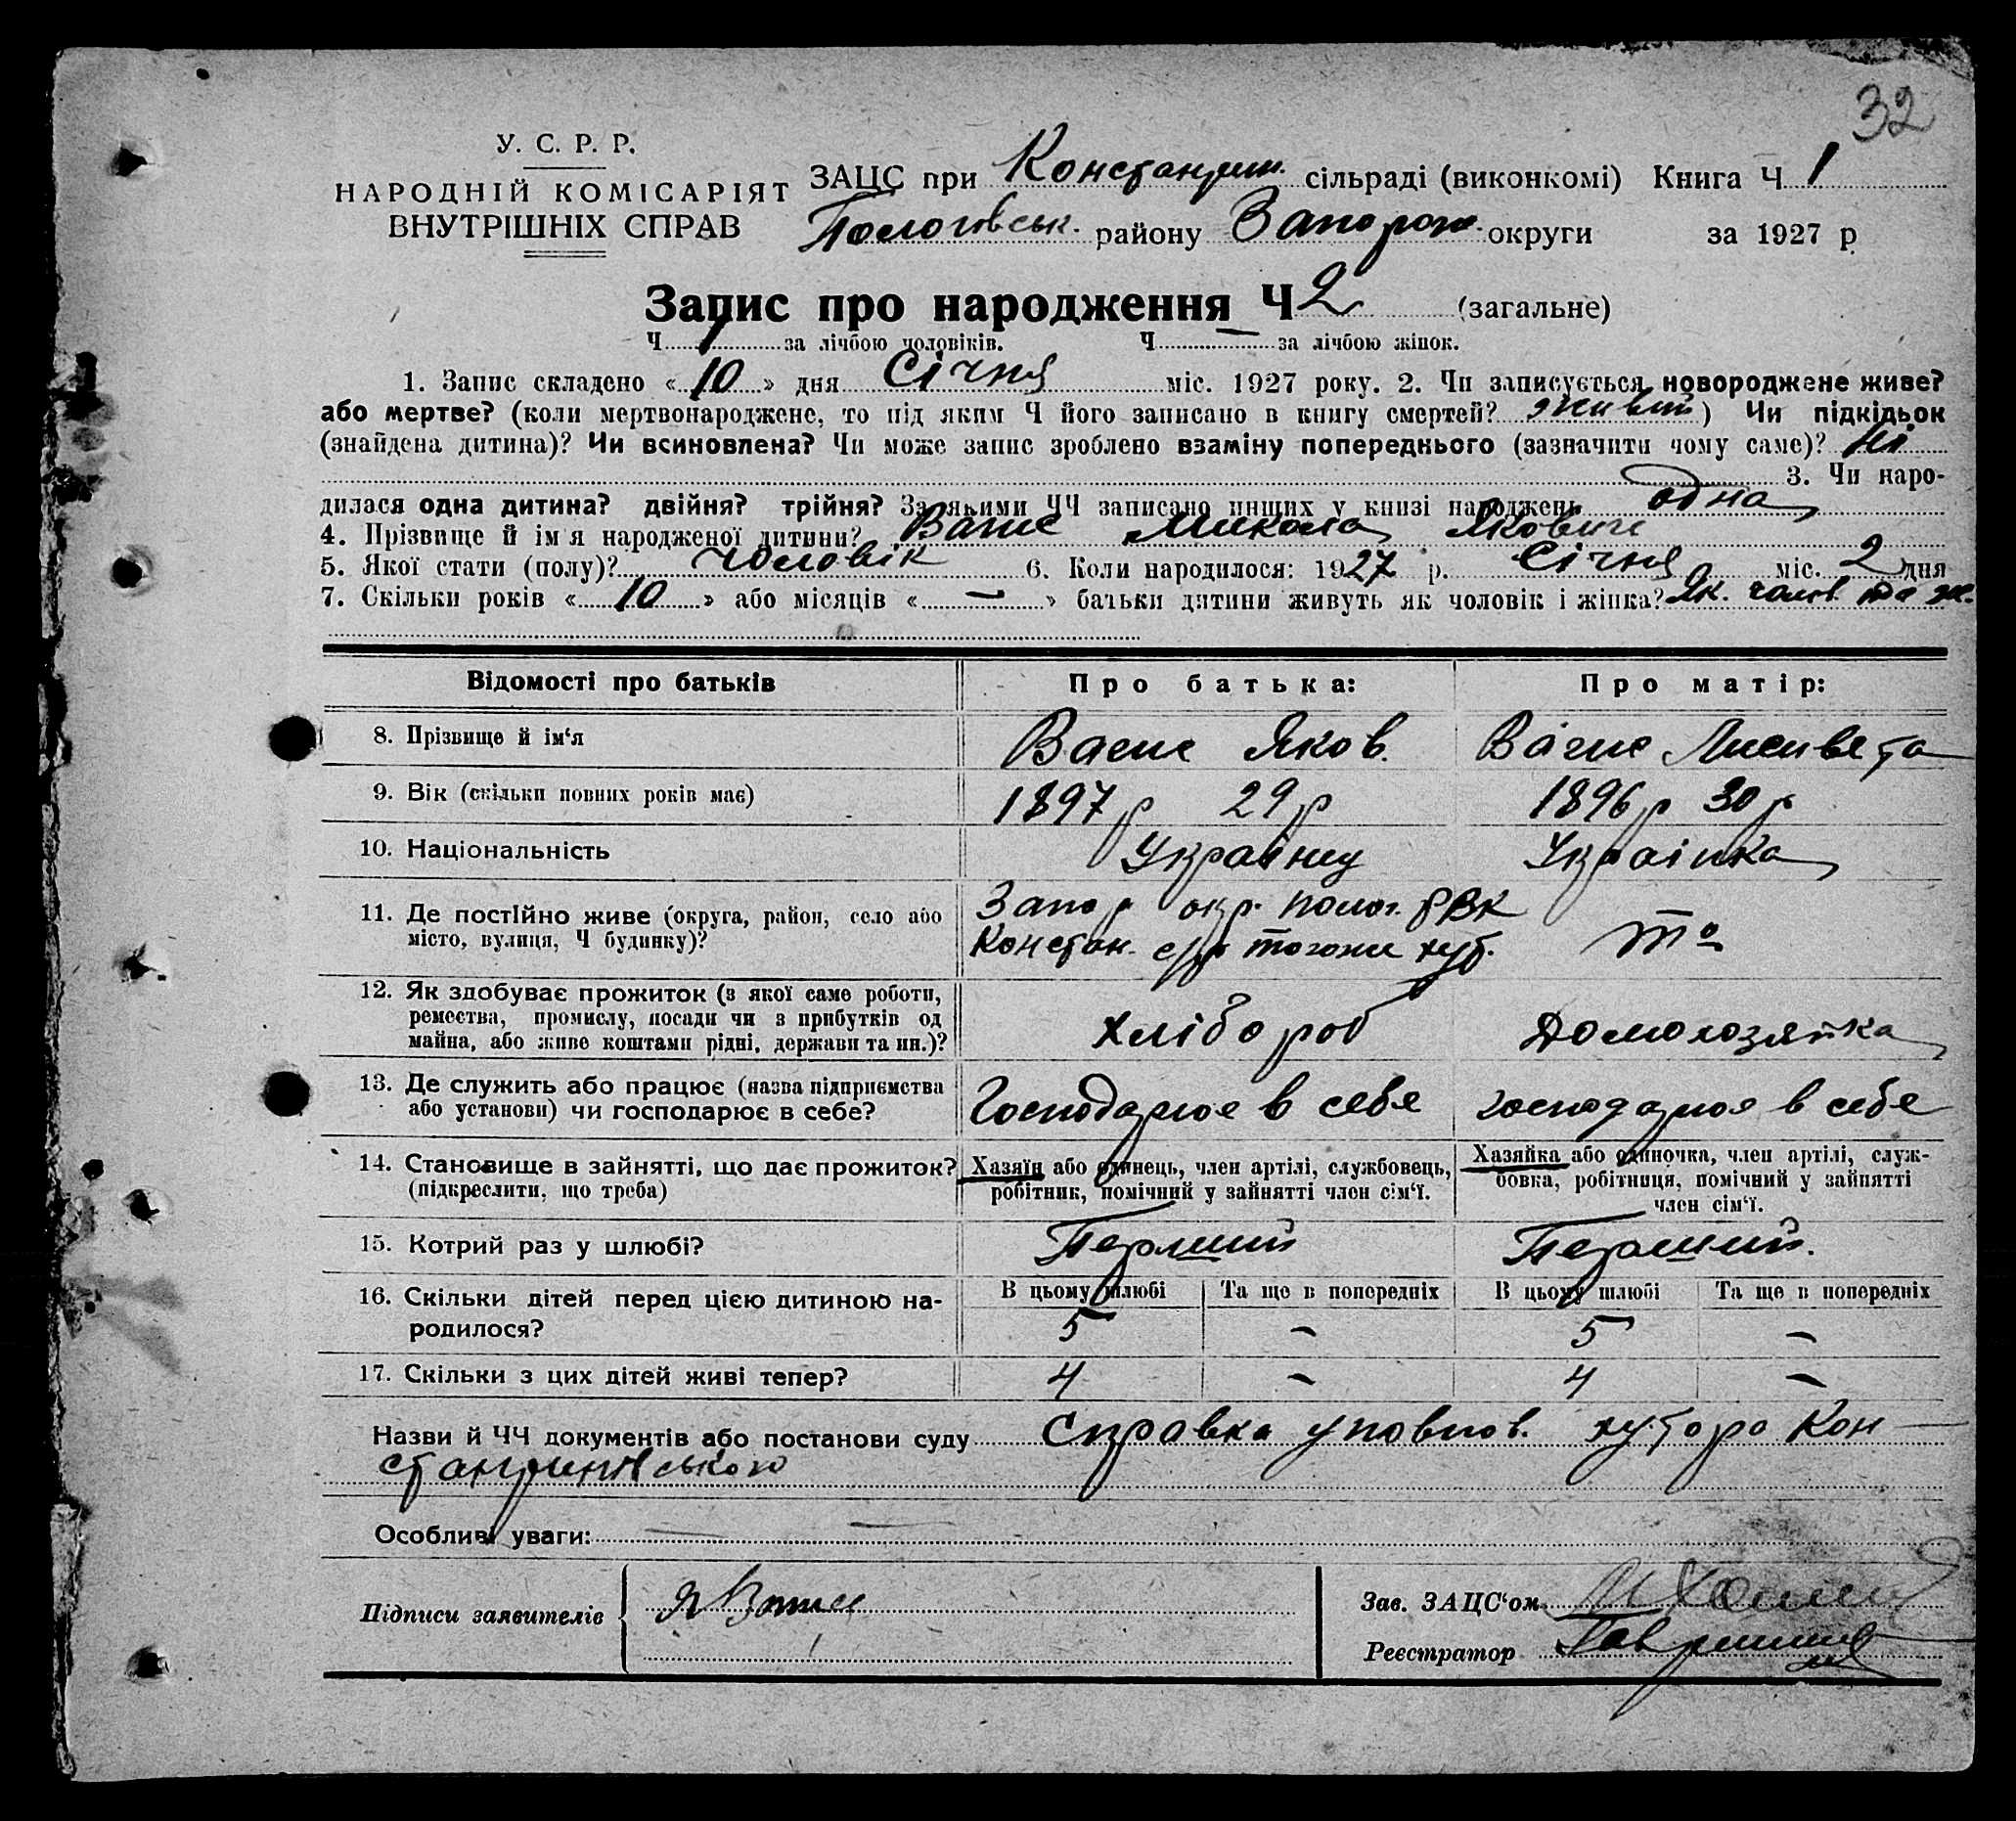 32
У. С. Р. Р.
НАРОДНІЙ КОМІСАРІЯТ
ВНУТРІШНІХ СПРАВ
ЗАЦС при Константин. сільраді (виконкомі) Книга Ч 1
Пологівськ. району Запорож. округи за 1927 р
Запис про народження Ч 2 (загальне)
Ч 1 за лічбою чоловіків. Ч — за лічбою жінок.
1. Запис складено « 10 » дня Січня міс. 1927 року. 2. Чи записується новороджене живе?
або мертве? (коли мертвонароджене, то під яким Ч його записано в книгу смертей? живий) Чи підкідьок
(знайдена дитина)? Чи всиновлена? Чи може запис зроблено взаміну попереднього (зазначити чому саме)? ні
3. Чи наро-
дилася одна дитина? двійня? трійня? За якими ЧЧ записано инших у книзі народжень одна
4. Прізвище й ім я народженої дитини? Микола Якович
5. Якої стати (полу)? Чоловік 6. Коли народилося: 1927 р. Січня міс. 2 дня
7. Скільки років « 10 » або місяців « — » батьки дитини живуть як чоловік і жінка? Як. чолов. та ж.
Відомості про батьків Про батька: Про матір:
8. Прізвище й ім‘я Яков. Лисивета
9. Вік (скільки повних років має) 1897 р 29 р 1896 р 30 р
10. Національність Українец Украінка
11. Де постІйно живе (округа, район, село або
місто, вулиця, Ч будинку)?
Запор окр. Полог. РВК
Констан. с/р тогож хут.
То
12. Як здобуває прожиток (з якої саме роботи,
ремества, промислу, посади чи з прибутків од
майна, або живе коштами рідні, держави та ин.)?
Хлібороб Домохозяйка
13. Де служить або працює (назва підприємства
або установи) чи господарює в себе?
Господарює в себе господарює в себе
14. Становище в зайнятті, що дає прожиток?
(підкреслити, що треба)
Хазяїн або одинець, член артілі, службовець,
робітник, помічний у зайнятті член сім‘ї.
Хазяйка або одиночка, член артілі, служ-
бовка, робітниця, помічний у зайнятті
член сім‘ї.
15. Котрий раз у шлюбі? Перший Перший.
16. Скільки дітей перед цією дитиною на-
родилося?
В цьому шлюбі Та ще в попередніх В цьому шлюбі Та ще в попередніх
5 — 5 —
17. Скільки з цих дітей живі тепер? 4 — 4 —
Назви й ЧЧ документів або постанови суду Справка уповнов. хутора Кон
стантинівського
Особливі уваги: — —
Підписи заявителів
Зав. ЗАЦС‘ом
Реєстратор